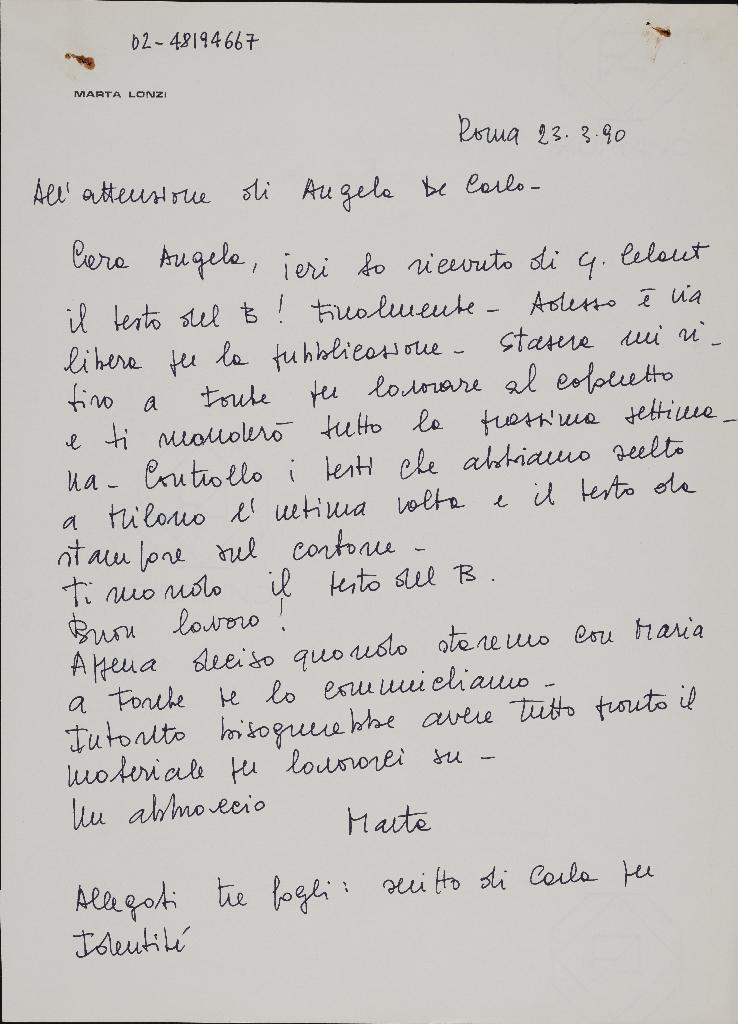 02-48194667
MARTA LONZI
Roma 23.3.90
All'attenzione di Angela De Carlo-
Cara Angela, ieri ho ricevuto di G. Celant
il testo del B! Finalmente - Adesso è via
libera per la pubblicazione - Stasera mi ri-
tiro a Torbe per lavorare al cofanetto
e ti manderò tutto la prossima settima-
na - Controllo i testi che abbiamo scelto
a Milano l'ultima volta e il testo da
stampare sul cartone -
Ti mando il testo del B.
Buon lavoro!
Appena deciso quando staremo con Maria
a Torbe te lo comunichiamo -
Intanto bisognerebbe avere tutto pronto il
materiale per lavorarci su -
Un abbraccio
Marta
Allegati tre fogli: scritto di Carla per
Identité